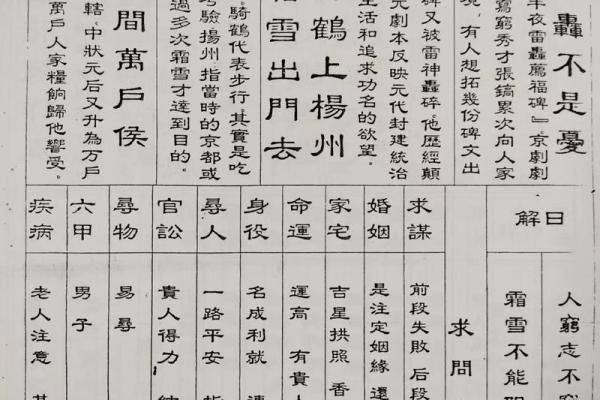 轟不是憂
半夜雷轟薦福碑』京劇劇
寫窮秀才張鎬累次向人家
境，有人想拓幾份碑文出
碑又被雷神轟碎，他歷經顛
元劇本反映元代封建統治
生活和追求功名的慾望。
鶴上楊州
雪出門去
騎鶴代表步行，其實是吃
考驗揚州，指當時的京都或
過多次霜雪才達到目的。
間萬戶侯
轄。中狀元后又升為万戶
萬戶人家糧餉歸他響受。
日解
人窮志不窮
霜雪不能
求問
求謀
前段失敗 后段
婚姻
是注定姻緣 還
家宅
吉星拱照 香
命運
運高 有貴人
身役
名成利就 連
尋人
一路平安 指
官訟
貴人得力
尋物
易尋
六甲
男子
疾病
老人注意